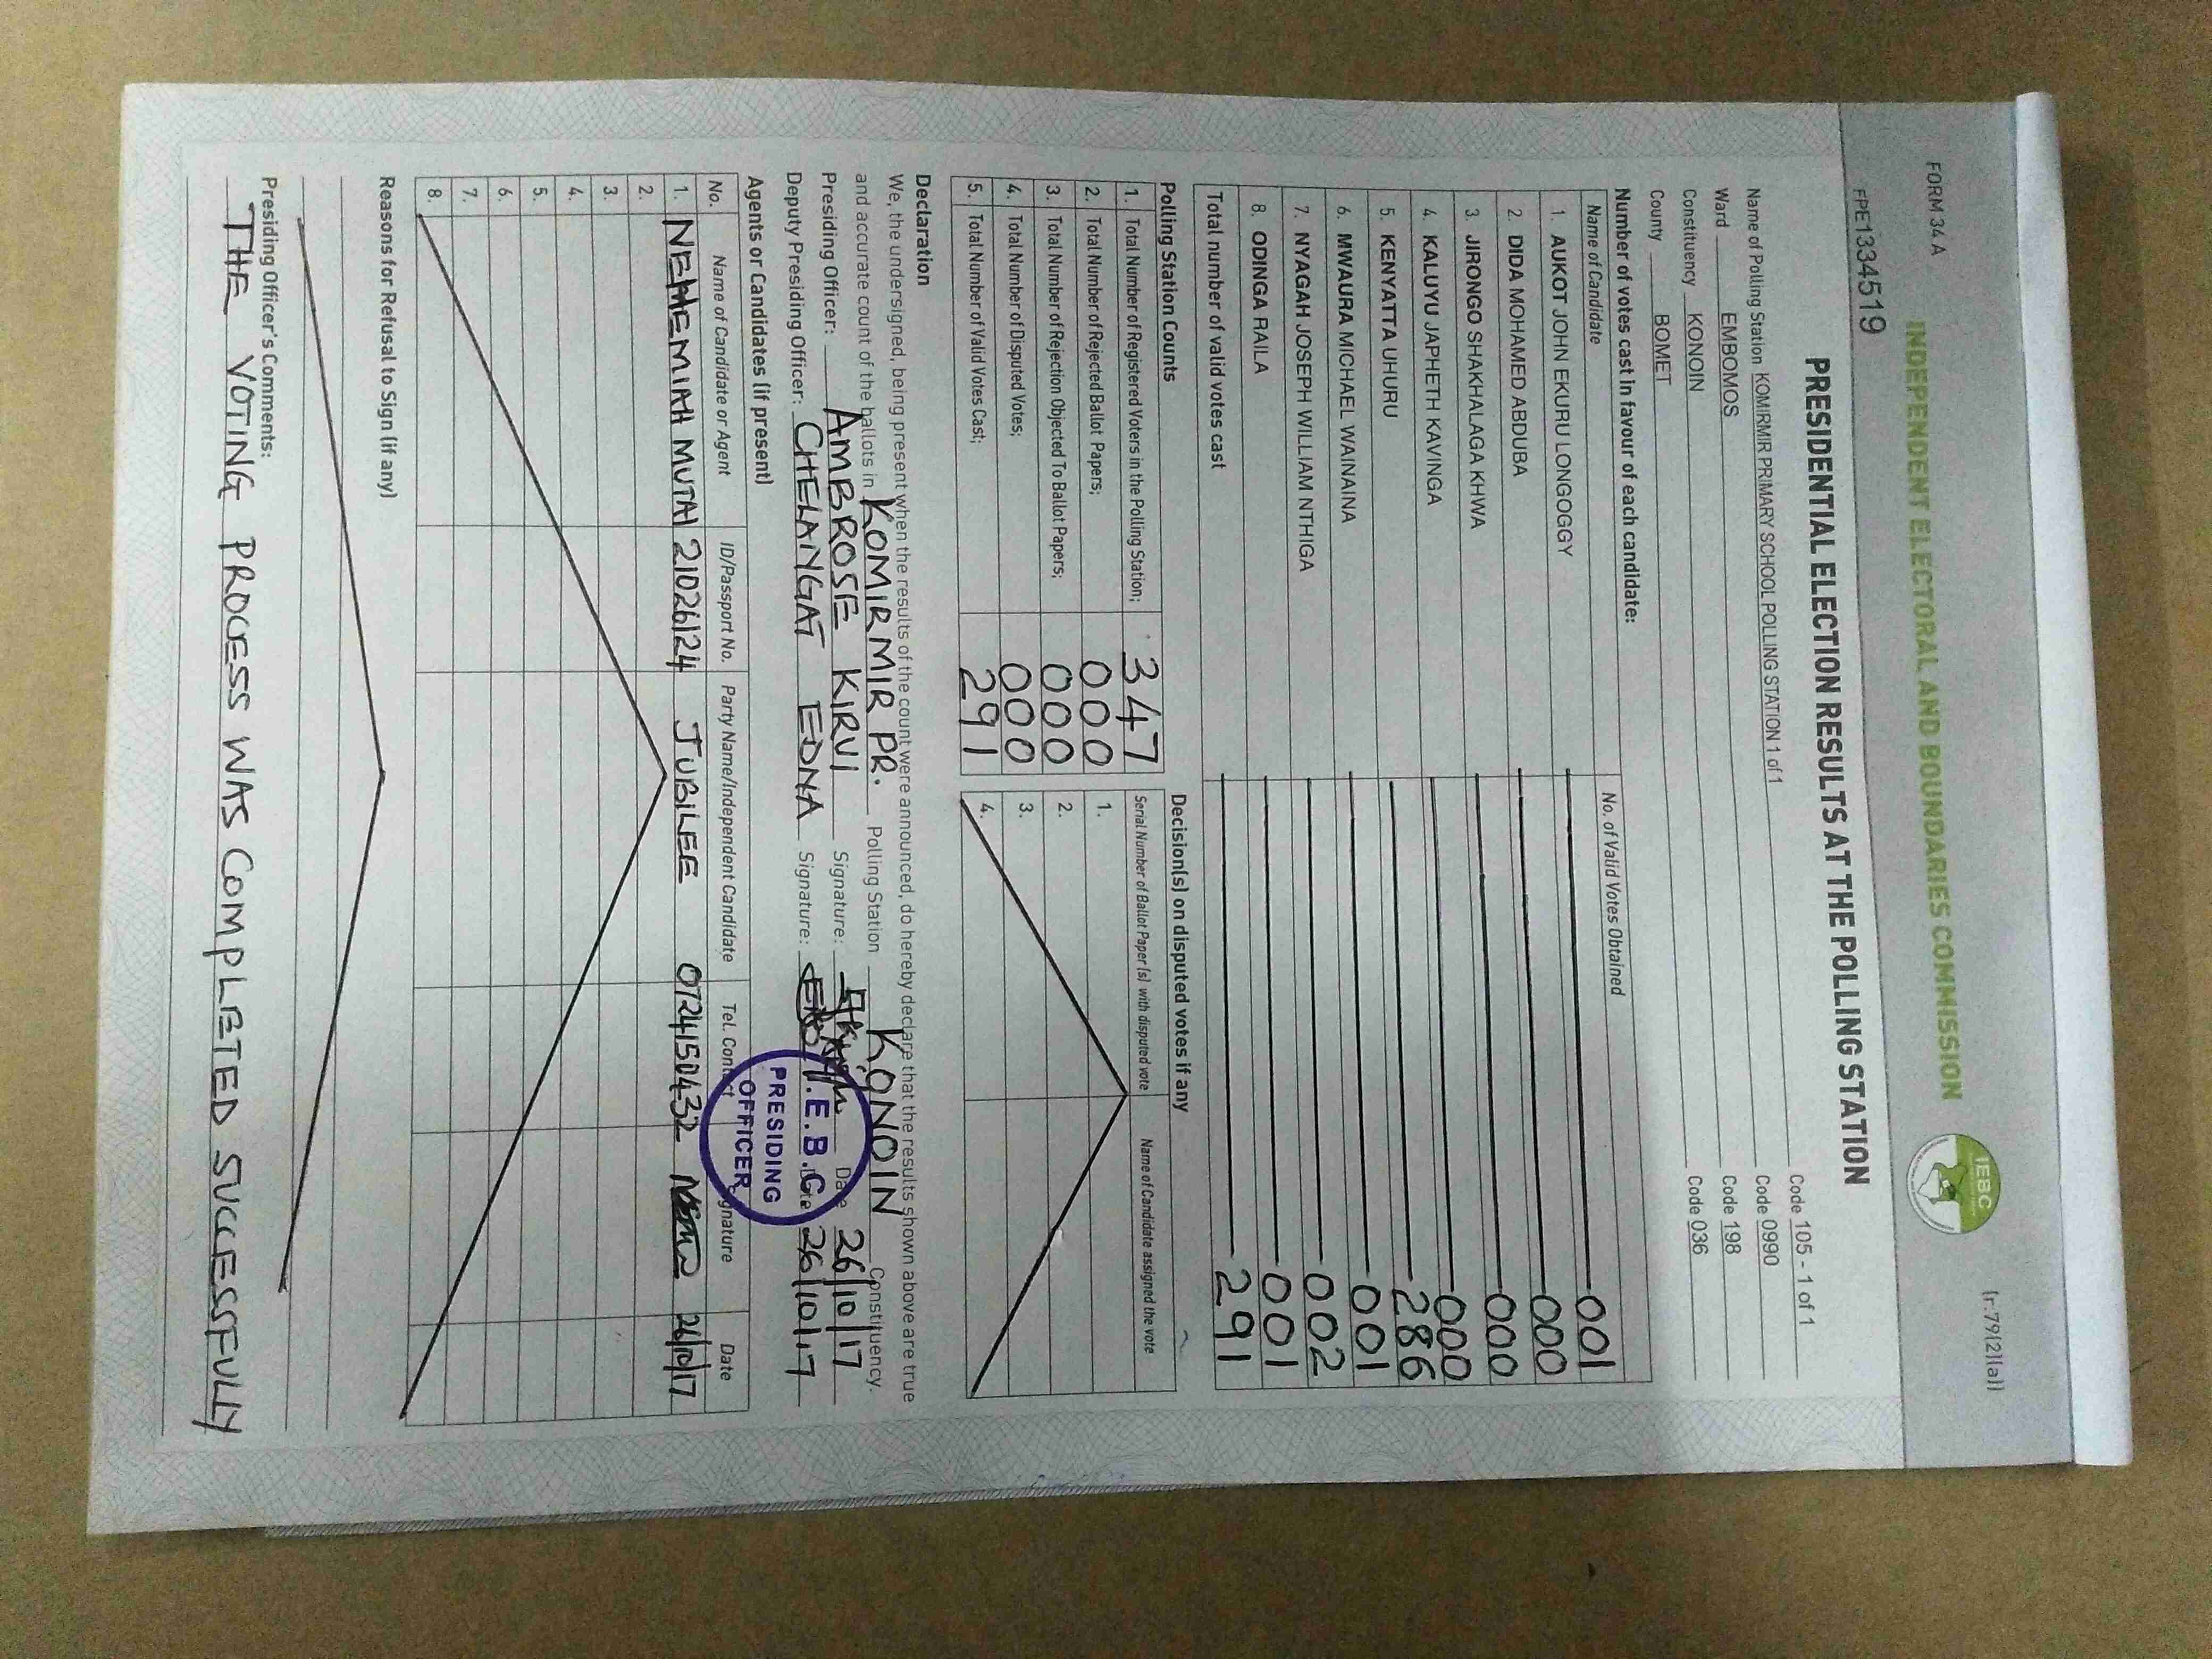 FORM 34 A
(r.79(2)(a))
INDEPENDENT ELECTORAL AND BOUNDARIES COMMISSION
IEBC
FPE1334519
PRESIDENTIAL ELECTION RESULTS AT THE POLLING STATION
Name of Polling Station KOMIRMIR PRIMARY SCHOOL POLLING STATION 1 of 1 Code 105 - 1 of 1
Ward EMBOMOS Code 0990
Constituency KONOIN Code 198
County BOMET Code 036
Number of votes cast in favour of each candidate:
Name of Candidate No. of Valid Votes Obtained
1. AUKOT JOHN EKURU LONGOGGY 001
2. DIDA MOHAMED ABDUBA 000
3. JIRONGO SHAKHALAGA KHWA 000
4. KALUYU JAPHETH KAVINGA 000
5. KENYATTA UHURU 286
6. MWAURA MICHAEL WAINAINA 001
7. NYAGAH JOSEPH WILLIAM NTHIGA 002
8. ODINGA RAILA 001
Total number of valid votes cast 291
Polling Station Counts
1. Total Number of Registered Voters in the Polling Station; 347
2. Total Number of Rejected Ballot Papers; 000
3. Total Number of Rejection Objected To Ballot Papers; 000
4. Total Number of Disputed Votes; 000
5. Total Number of Valid Votes Cast; 291
Decision(s) on disputed votes if any
Serial Number of Ballot Paper (s) with disputed vote Name of Candidate assigned the vote
1.
2.
3.
4.
Declaration
We, the undersigned, being present when the results of the count were announced, do hereby declare that the results shown above are true
and accurate count of the ballots in KOMIRMIR PR. Polling Station KONOIN Constituency.
Presiding Officer: AMBROSE KIRUI Signature: Date 26/10/17
Deputy Presiding Officer: CHELANGAT EDNA Signature: Date 26/10/17
I.E.B.C
PRESIDING
OFFICER
Agents or Candidates (if present)
No. Name of Candidate or Agent ID/Passport No. Party Name/Independent Candidate Tel. Contact Signature Date
1. NEHEMIAH MUTAI 21026124 JUBILEE 0724150432 26/10/17
2.
3.
4.
5.
6.
7.
8.
Reasons for Refusal to Sign (if any)
Presiding Officer's Comments:
THE VOTING PROCESS WAS COMPLETED SUCCESSFULLY